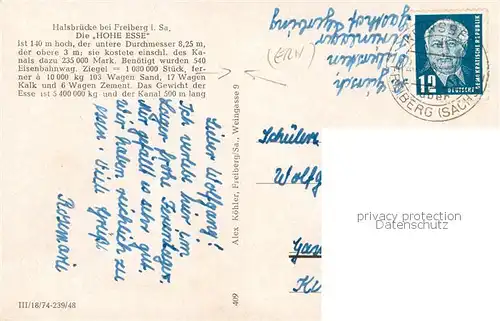 Halsbrücke bei Freiberg i. Sa.
Die „HOHE ESSE“
ist 140 m hoch, der untere Durchmesser 8,25 m,
der obere 3 m. Baukosten einschl. des Ka-
nals dazu 235 000 Mark. Benötigt wurden 540
Eisenbahnwag. Ziegel = 1 080 000 Stück, fer-
ner à 10 000 kg 103 Wagen Sand, 17 Wagen
Kalk und 6 Wagen Zement. Das Gewicht der
Esse ist 5 400 000 kg und der Kanal 590 m lang
Lieber Wolfgang!
Ich verlebe hier im
Lager frohe Ferientage.
Mir gefällt es sehr gut.
Wir haben reichlich zu
essen. Viele Grüße
Rosemarie
Alex Köhler, Freiberg/Sa., Weingasse 9
409
III/18/74-239/48
Ferienlager
DEUTSCHE DEMOKRATISCHE REPUBLIK
12
FREIBERG (SACHS)
Schüler
Wolfg
privacy protection
Datenschutz
www.oldthing.de